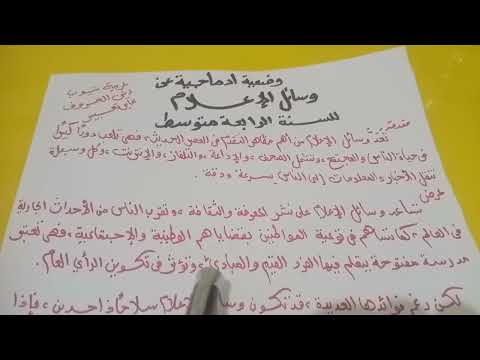 وضعية ادماجية عن
وسائل الإعلام
للسنة الرابعة متوسط
مقدمة
تعدّ وسائل الإعلام من أهم مظاهر التقدم في العصر الحديث، فهي تلعب دورًا كبيرًا
في حياة الناس والمجتمع، وتشمل الصحف، والإذاعة، والتلفاز، والإنترنت، وكل وسيلة
تنقل الأخبار والمعلومات إلى الناس بسرعة ودقة.
عرض
تساعد وسائل الإعلام على نشر المعرفة والثقافة، وتقرب الناس من الأحداث الجارية
في العالم، كما تساهم في توعية المواطنين بقضاياهم الوطنية والاجتماعية، فهي تعتبر
مدرسة مفتوحة يتعلم فيها الفرد القيم والمبادئ، وتؤثر في تكوين الرأي العام.
لكن رغم فوائدها العديدة، قد تكون وسائل الإعلام سلاحًا ذا حدين، فإذا